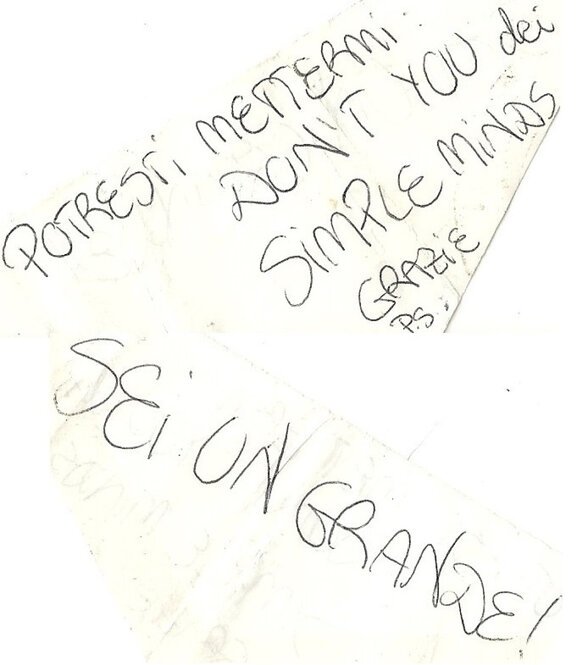 POTRESTI METTERMI
DON'T YOU dei
SIMPLE MINDS
GRAZIE
P.S.
SEI UN GRANDE!